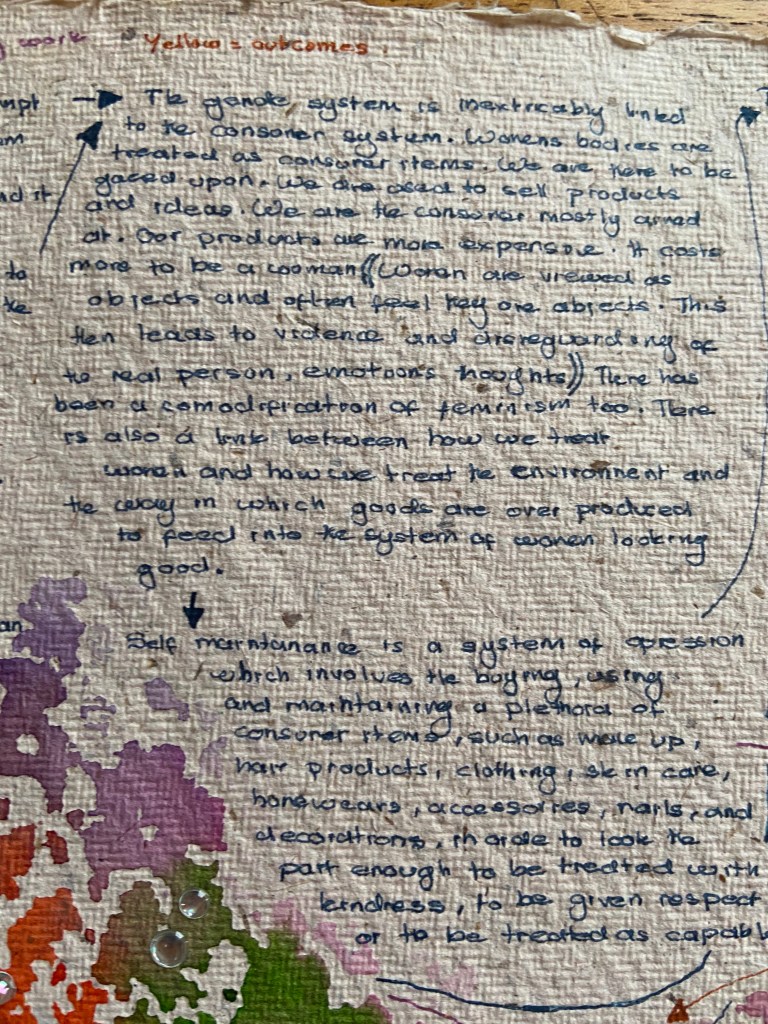 g work
Yellow = outcomes.
mpt
The gende system is inextricably linked
um
to the consomer system. Womens bodies are
treated as consumer items. We are here to be
nd it
gazed upon. We are used to sell products
and ideas. We are the consumer mostly aimed
at. Our products are more expensive. It costs
to
more to be a woman ((Woman are viewed as
the
objects and often feel they are abjects. This
then leads to violence and disreguarding of
the real person, emotoons thoughts)) There has
been a comodification of feminism too. There
is also a link between how we treat
women and how we treat the environment and
the way in which goods are over produced
to feed into the system of women looking
good.
an
Self maintanance is a system of opression
which involves the buying, using
and maintaining a plethora of
consumer items, such as make up,
hair products, clothing, skin care,
homewears, accessories, nails, and
decorations, in orde to look the
part enough to be treated with
kindness, to be given respect
or to be treated as capabl